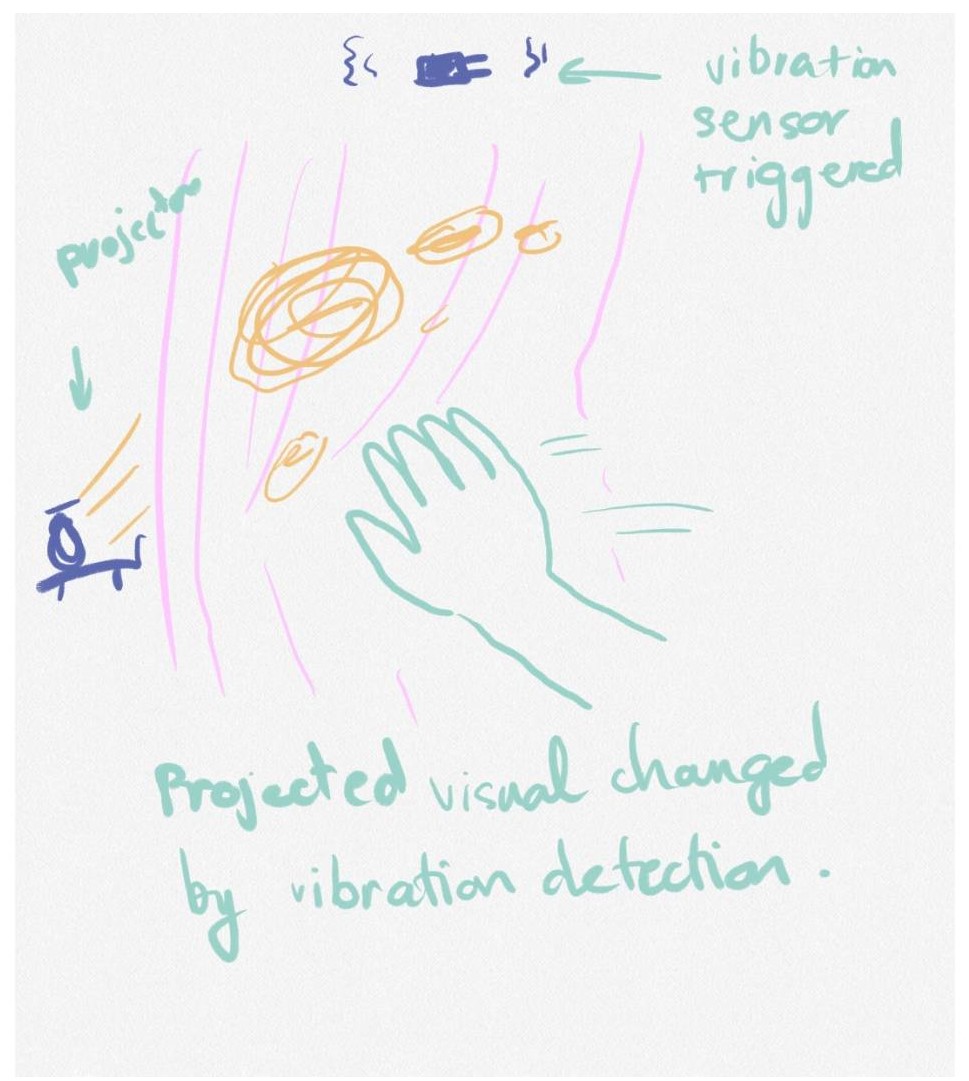 vibration
sensor
triggered
projector
Projected visual changed
by vibration detection.